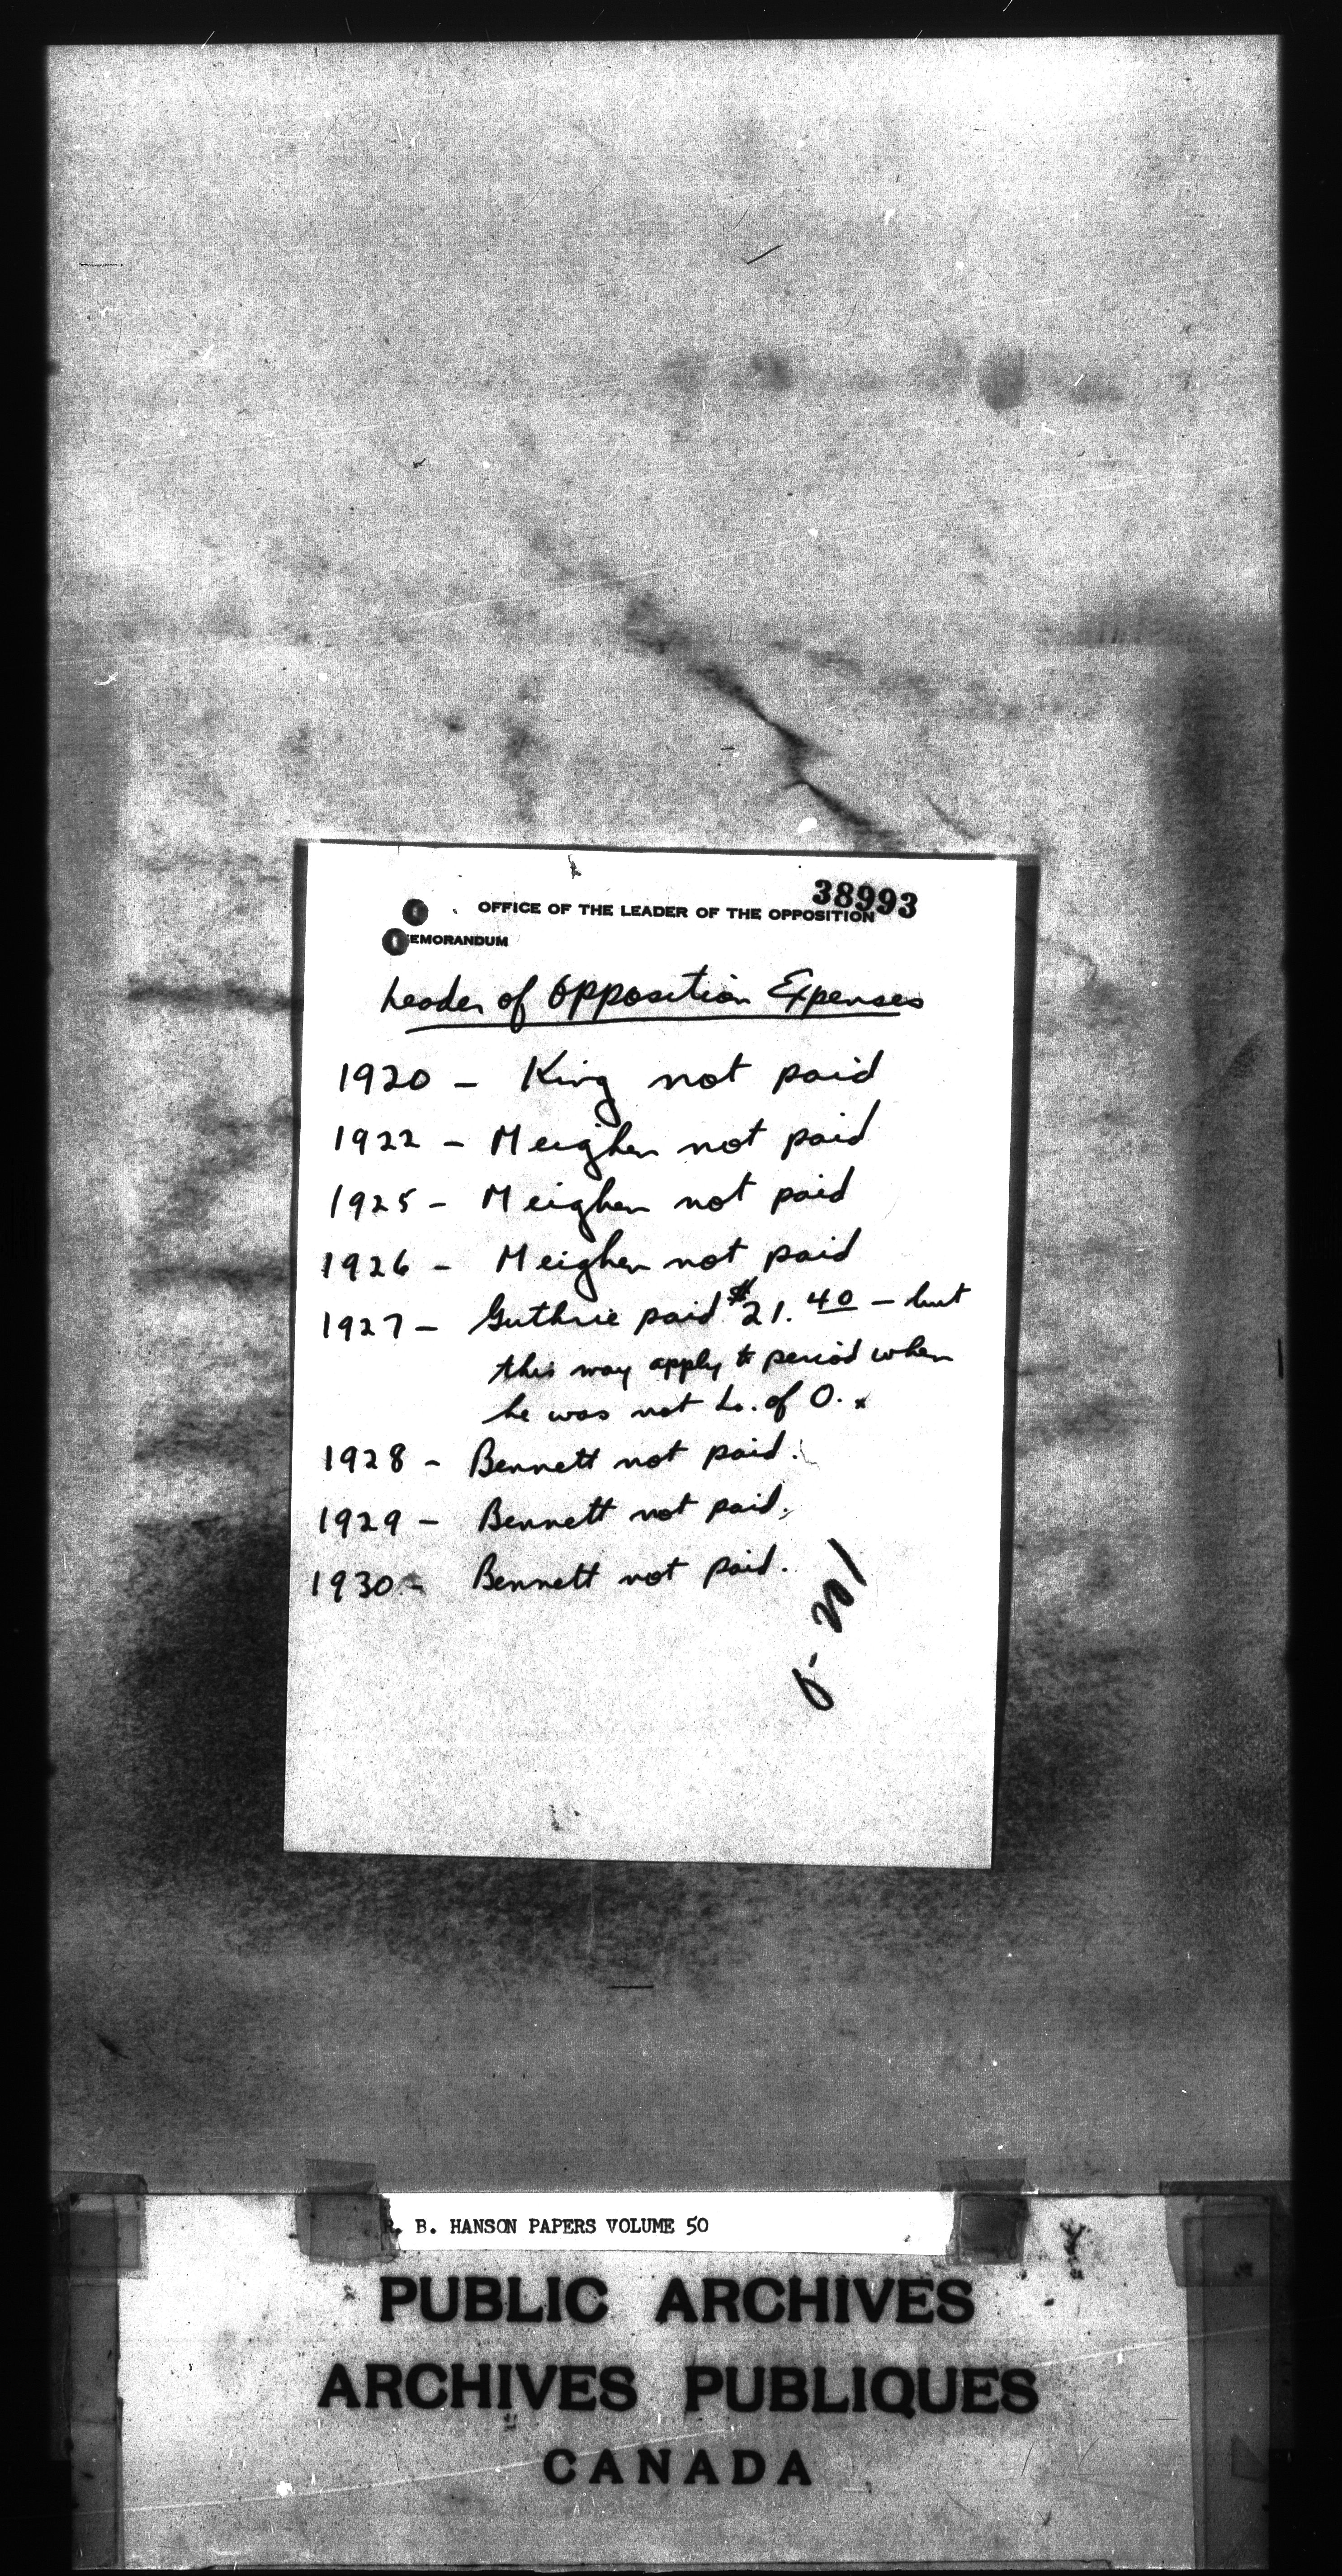 38993
OFFICE OF THE LEADER OF THE OPPOSITION
EMORANDUM
Leader of Opposition Expenses
1920 - King not paid
1922 - Meighen not paid
1925 - Meighen not paid
1926 - Meighen not paid
1927 - Guthrie paid $21.40 - but
this may apply to period when
he was not L. of O.
1928 - Bennett not paid.
1929 - Bennett not paid.
1930 - Bennett not paid.
R. B. HANSON PAPERS VOLUME 50
PUBLIC ARCHIVES
ARCHIVES PUBLIQUES
CANADA